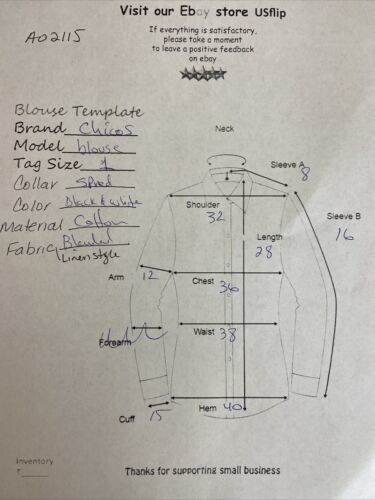 Visit our Ebay store USflip
A02115
If everything is satisfactory,
please take a moment
to leave a positive feedback
on ebay
Blouse Template
Brand Chicos
Model blouse
Tag Size 1
Collar Spread
Color Black & White
Material Cotton
Fabric Blended
Linen style
Neck
Sleeve A
8
Shoulder
32
Sleeve B
16
Length
28
Arm
12
Chest
36
Forearm
Waist 38
Cuff
15
Hem 40
Inventory
T
Thanks for supporting small business